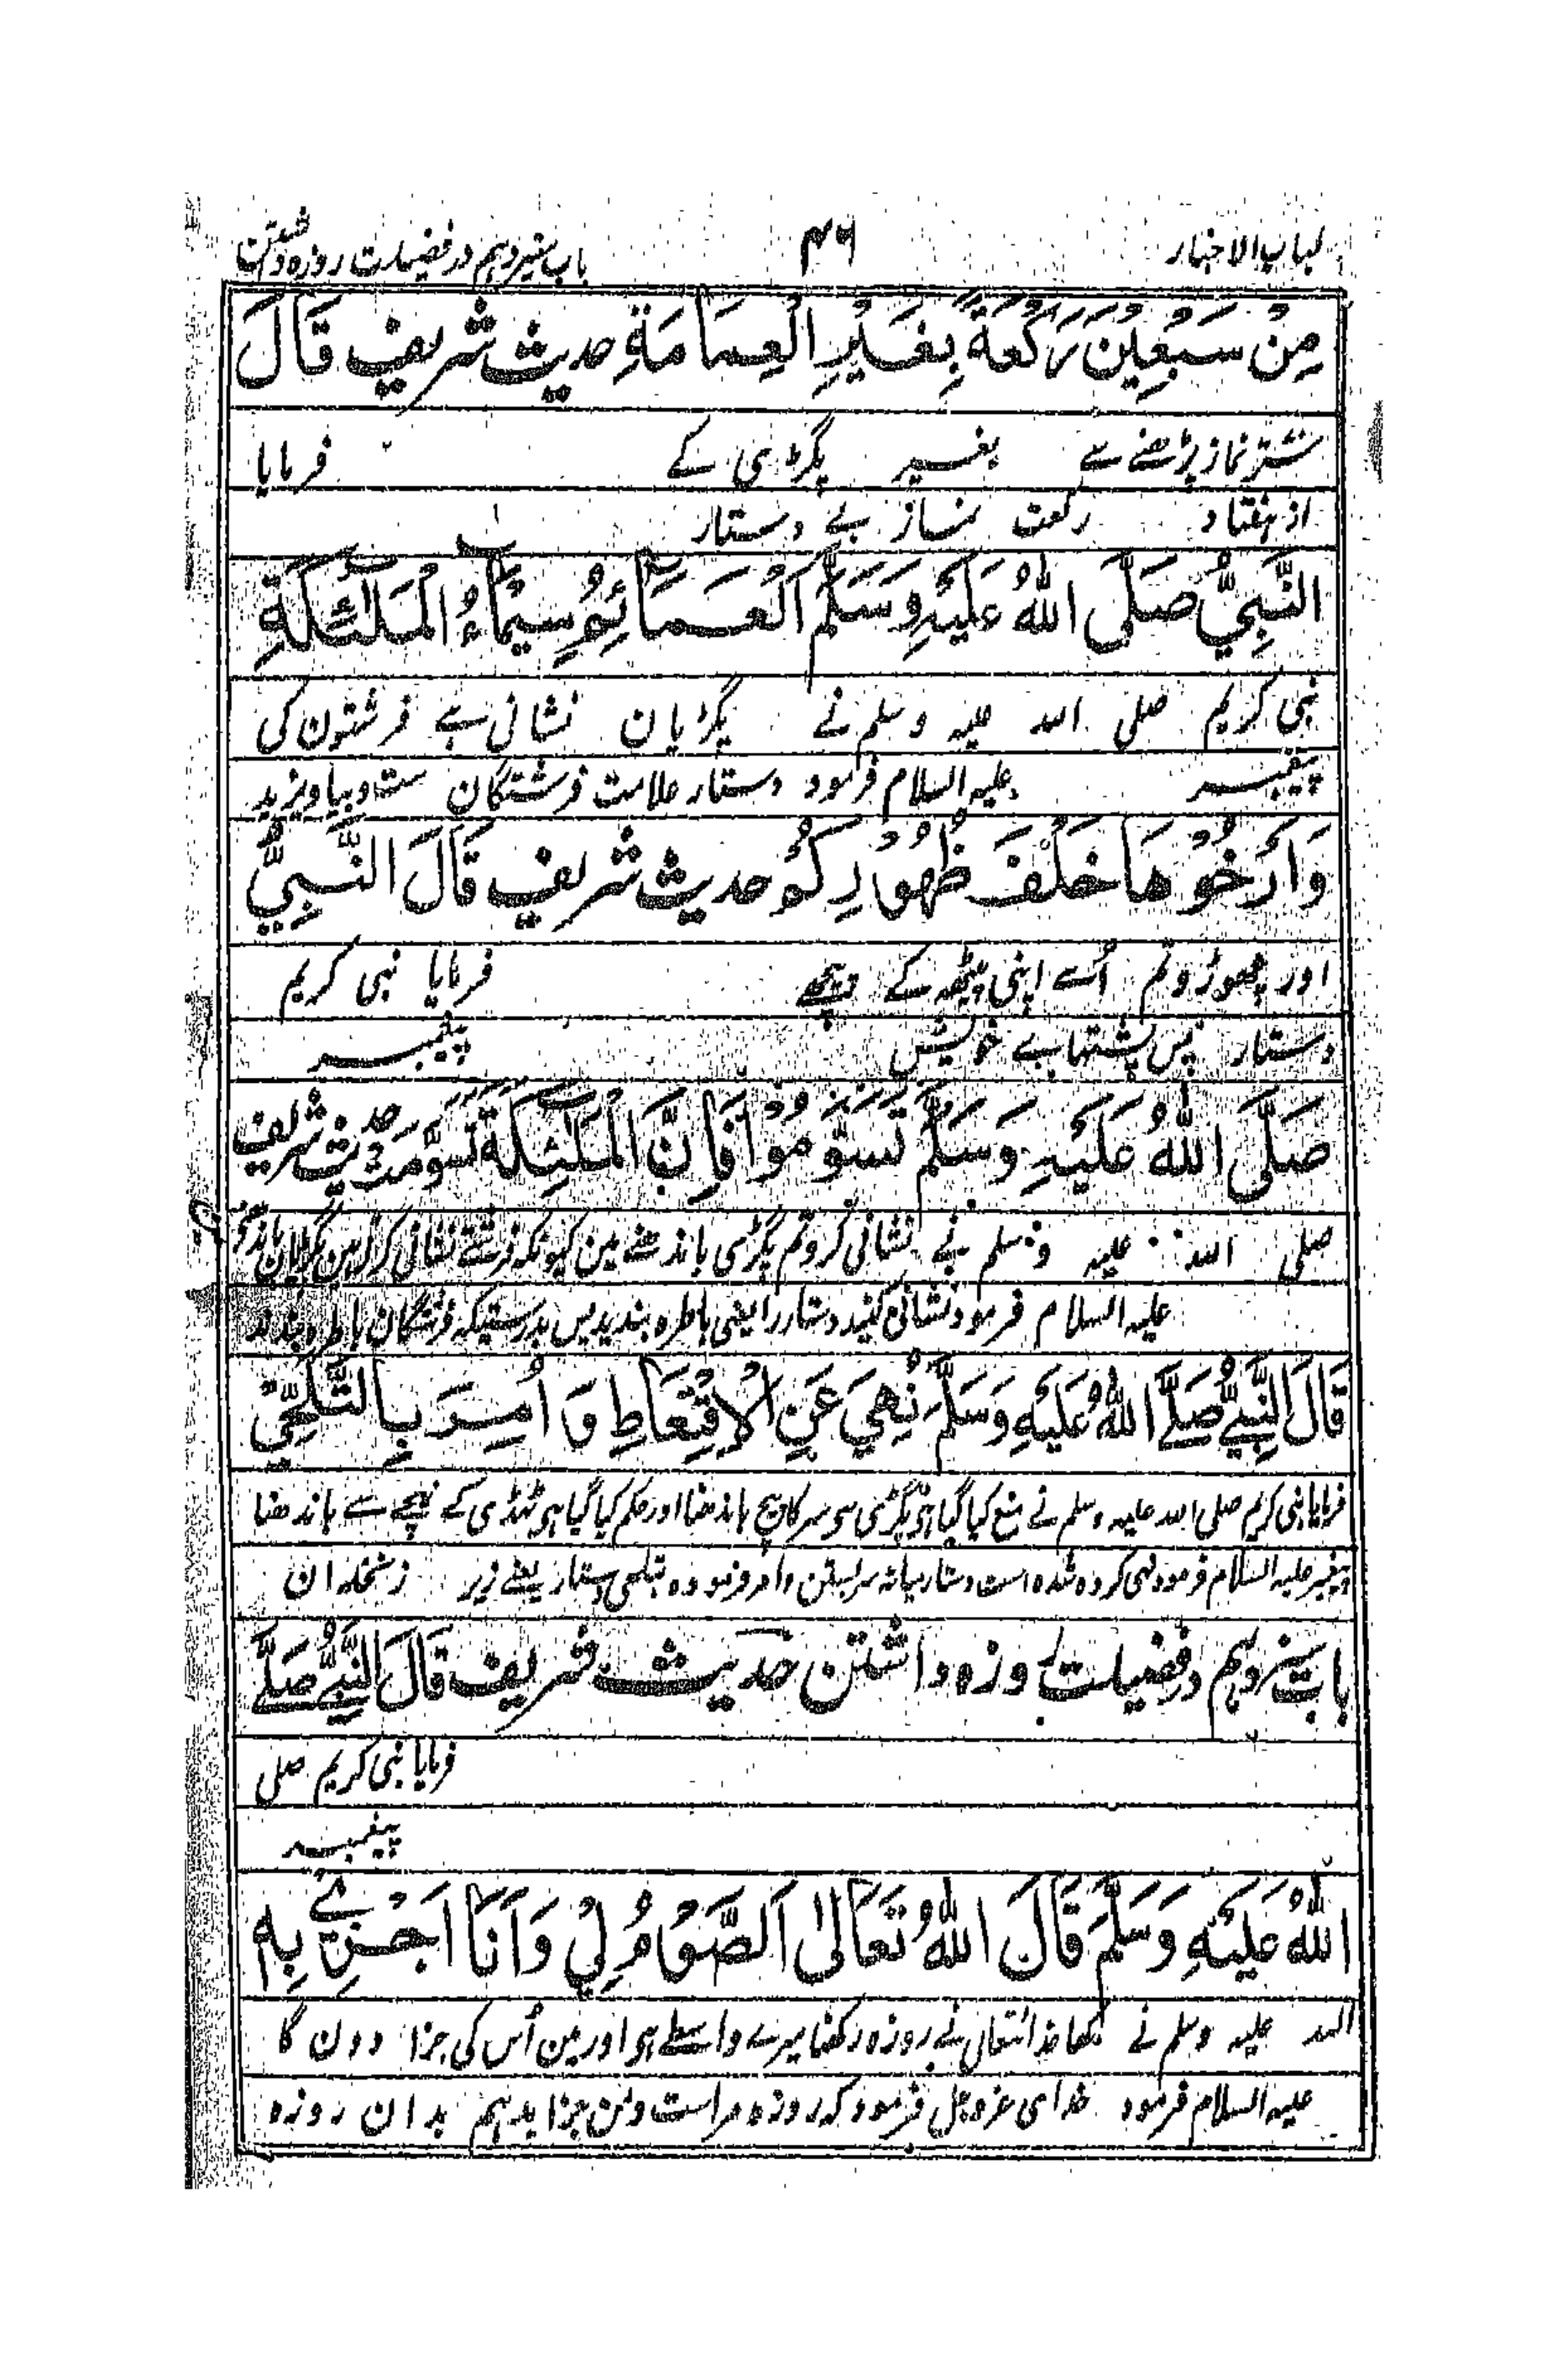 لباب الاخبار ۴۶ باب سیزدہم در فضیلت روزہ داشتن
مِنْ سَبْعِیْنَ رَکْعَةً بِغَیْرِ الْعِمَامَةِ حدیث شریف قَالَ
ستر نماز پڑھنے سے بغیر پگڑی کے فرمایا
از ہفتاد رکعت نماز بے دستار
النَّبِیُّ صَلَّی اللّٰهُ عَلَیْهِ وَسَلَّمَ اَلْعَمَائِمُ سِیْمَاءُ الْمَلٰئِکَةِ
نبی کریم صلی اللہ علیہ وسلم نے پگڑیان نشانی ہے فرشتون کی
پیغمبر علیہ السلام فرمود دستار علامت فرشتگان ست و بیاویزید
وَاَرْخُوْهَا خَلْفَ ظُهُوْرِکُمْ حدیث شریف قَالَ النَّبِیُّ
اور چھوڑو تم اُسے اپنی پیٹھہ کے پیچھے فرمایا نبی کریم
دستار پس پشتہاے خویش پیغمبر
صَلَّی اللّٰهُ عَلَیْهِ وَسَلَّمَ تَسَوَّمُوْا فَاِنَّ الْمَلٰئِکَةَ تَسَوَّمَتْ حدیث شریف
صلی اللہ علیہ وسلم نے نشانی کرو تم پگڑی باندھنے مین کیونکہ فرشتے نشانی
علیہ السلام فرمود نشانی کنید دستار را یعنی باطرہ بندید پس بدرستیکہ فرشتگان باطرہ بندند
قَالَ النَّبِیُّ صَلَّی اللّٰهُ عَلَیْهِ وَسَلَّمَ نُهِیَ عَنِ الْاِقْتِعَاطِ وَ اُمِرَ بِالتَّلَحِّیْ
فرمایا نبی کریم صلی اللہ علیہ وسلم نے منع کیا گیا ہی پگڑی سو سر کا بیچ باندھنا اور حکم کیا گیا ہی ٹھنڈی کے نیچے سے باندھنا
پیغمبر علیہ السلام فرمود نہی کردہ شدہ است دستار میانہ سر بستن و امر فرمودہ بتلحی دستار یعنے زیر زنخدان
باب سیزدہم در فضیلت روزہ داشتن حدیث شریف قَالَ النَّبِیُّ صَلَّی
فرمایا نبی کریم صلی
پیغمبر
اللّٰهُ عَلَیْهِ وَسَلَّمَ قَالَ اللّٰهُ تَعَالٰی اَلصَّوْمُ لِیْ وَاَنَا اَجْزِیْ بِهٖ
اللہ علیہ وسلم نے کہا خدا تعالی نے روزہ رکھنا میرے واسطے ہو اور مین اُس کی جزا دون گا
علیہ السلام فرمود خدای عزوجل فرمود کہ روزہ مراست ومن جزا بدہم بدان روزہ